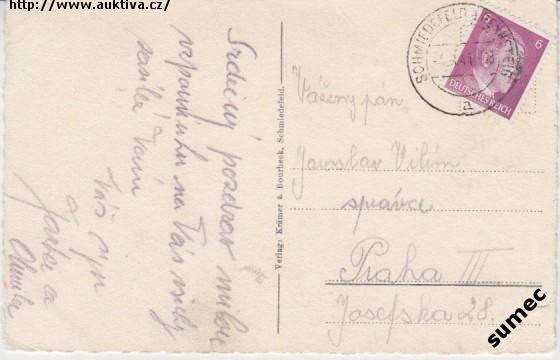 http://www.auktiva.cz/
Srdečný pozdrav milou
vzpomínku na Vás vždy
zasílá Vám
Váš syn
Jarka a
SCHMIEDEFELD
a
6
6
DEUTSCHES REICH
Vážený pán
Jaroslav Vilím
správce
Praha III
Josefska 28.
Verlag: Krämer & Bourbeck, Schmiedefeld.
sumec